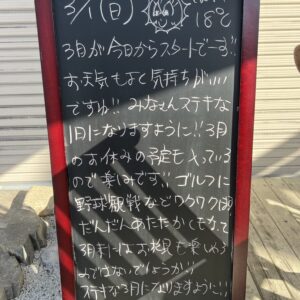 3/1(日)
18℃
3月が今日からスタートでーす!!
お天気もよく気持ちがいい
ですね!! みなさんステキな
1日になりますように!! 3月
のお休みの予定も入っている
ので楽しみです!! ゴルフに
野球観戦などワクワク
だんだんあたたかくもなって
3月末にはお花見も楽しめる
のではないでしょうか!!
ステキな3月になりますように!!